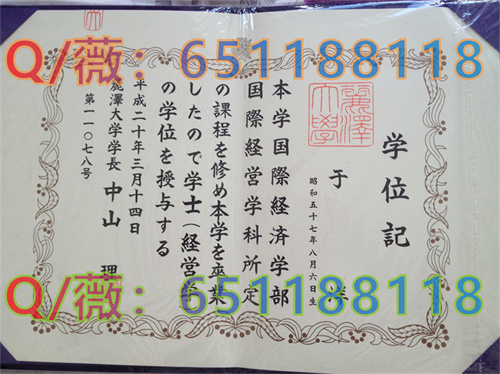 Q/薇：651188118
学位記
麗澤大學
于洋
昭和五十七年八月六日生
本学国際経済学部
国際経営学科所定
の課程を修め本学を卒業
したので学士（経営学）
の学位を授与する
平成二十年三月十四日
麗澤大学学長 中山 理
第一一〇七八号
Q/薇：651188118